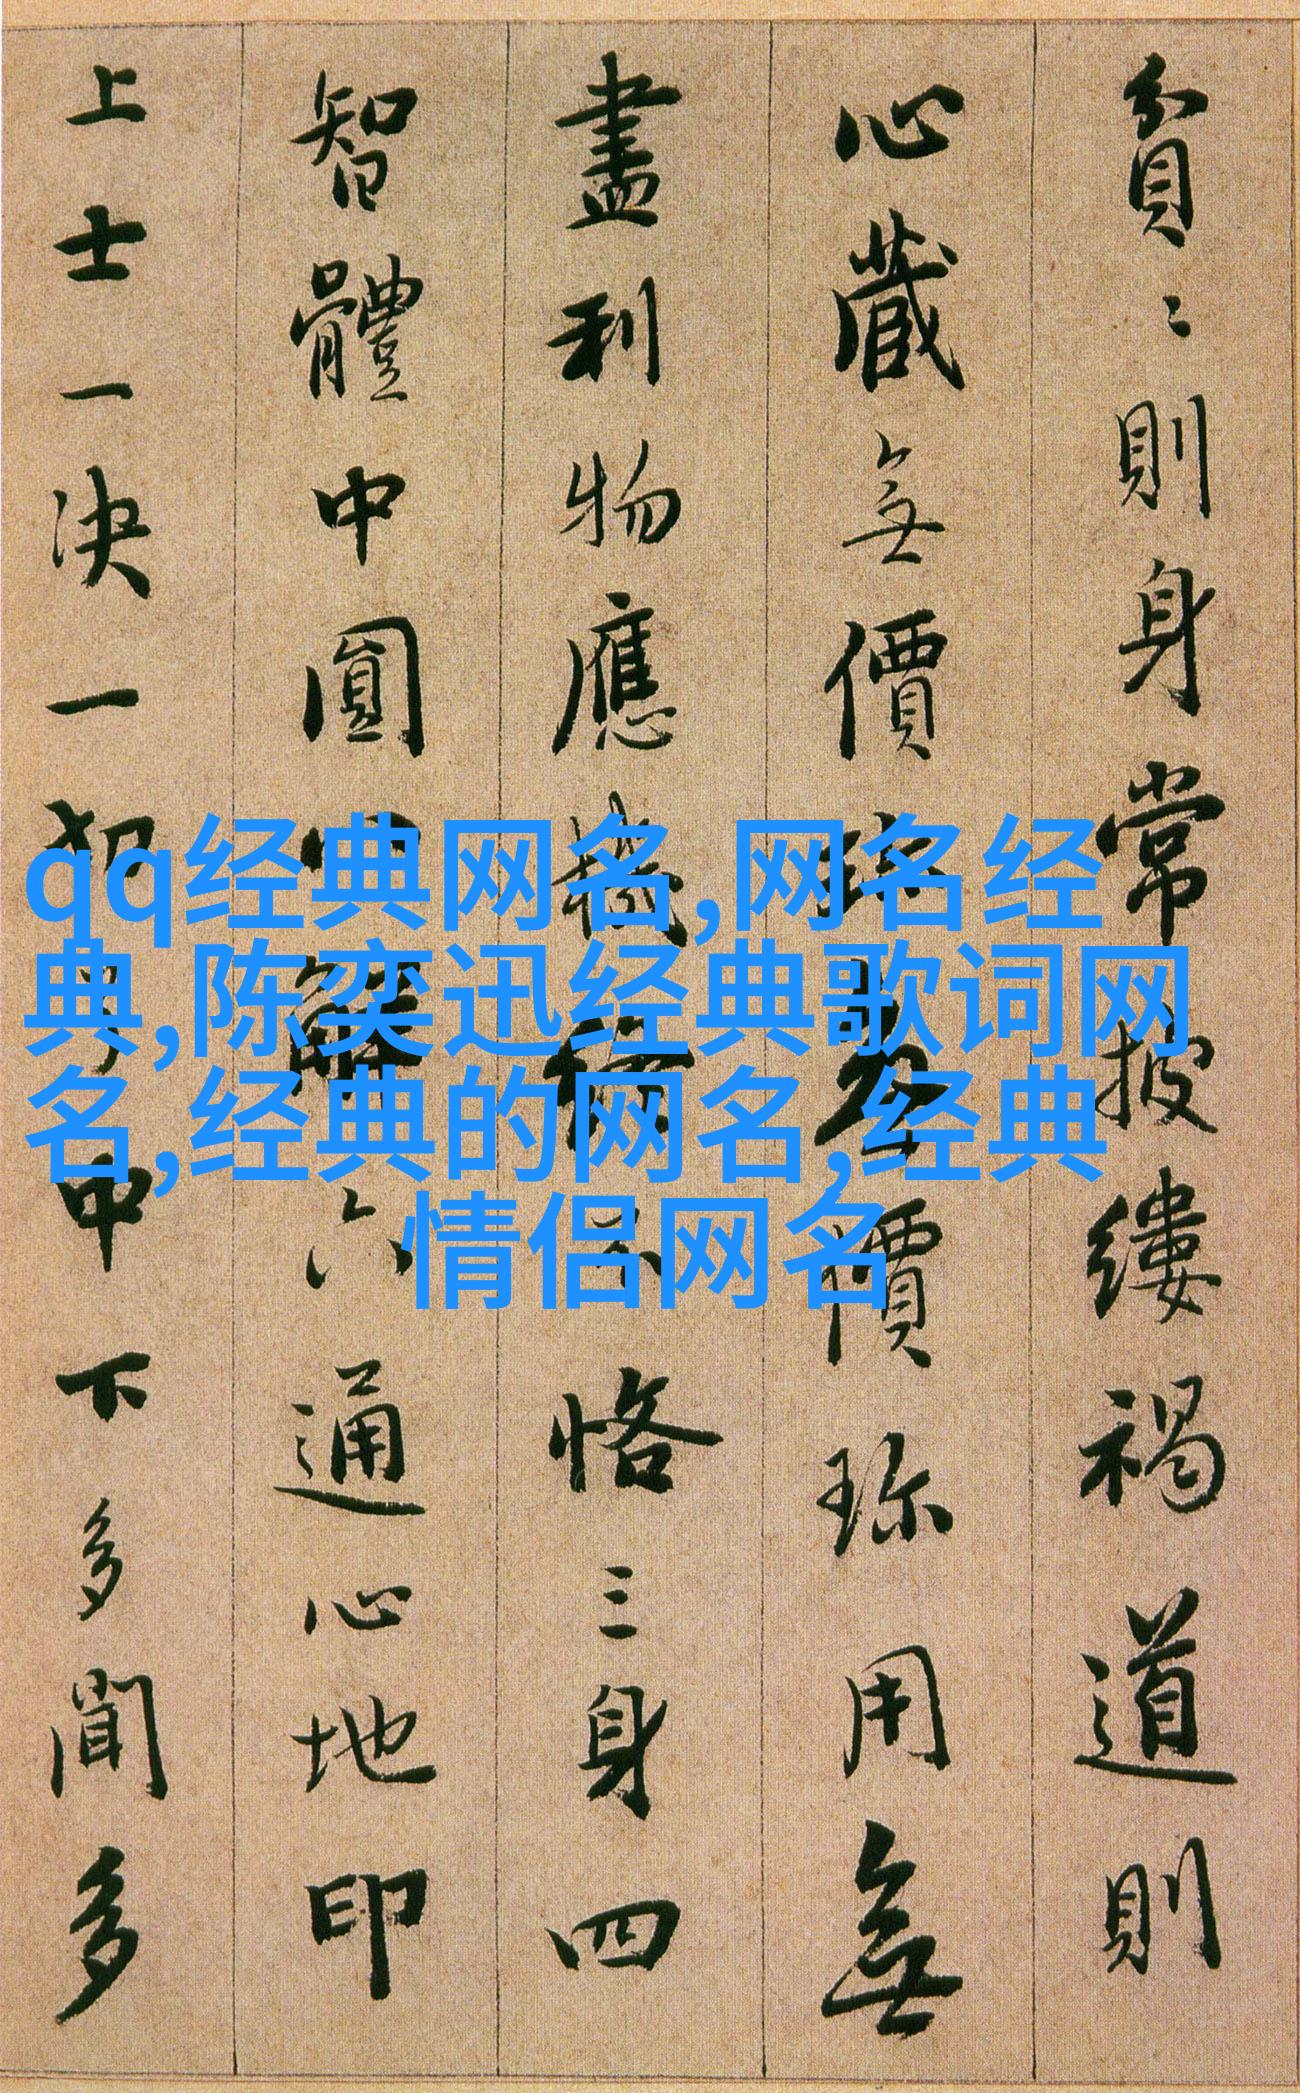 貧〻則身常披縷褐道則
心藏無價珎無價珎用無
盡利物應機不恪三身四
智體中圓八解六通心地印
上士一决一切中下多聞多
qq经典网名,网名经
典,陈奕迅经典歌词网
名,经典的网名,经典
情侣网名